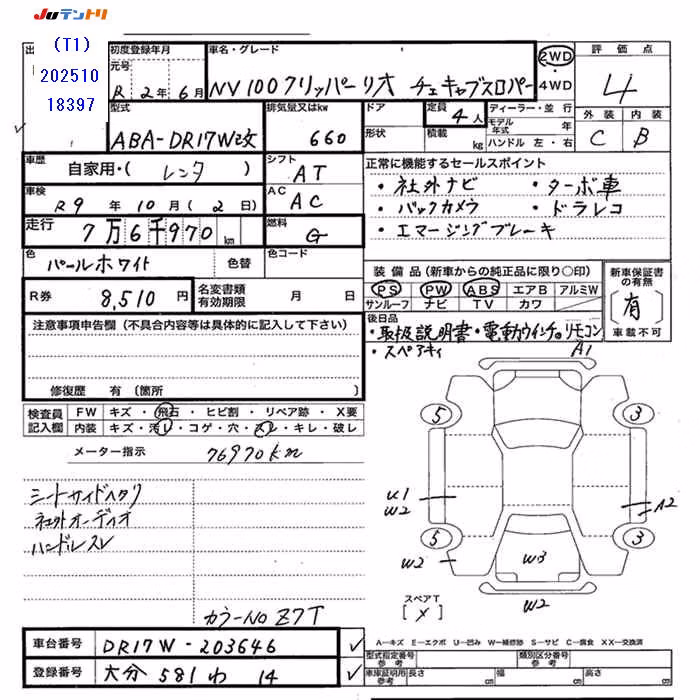 JUテントリ
出
(T1)
202510
18397
初度登録年月
元号
R 2年 6月
車名・グレード
NV100クリッパーリオ チェキャブスロパー
2WD
4WD
評価点
4
外装 内装
C B
型式
ABA-DR17W改
排気量又はkw
660
ドア
形状
定員
4人
積載
kg
ディーラー・並行
モデル年式 年
ハンドル 左・右
車歴
自家用・( レンタ )
シフト
AT
正常に機能するセールスポイント
・社外ナビ ・ターボ車
・バックカメラ ・ドラレコ
・エマージングブレーキ
車検
R9年 10月 (2日)
AC
AC
走行
7万6千970km
燃料
G
色
パールホワイト
色替
色コード
R券
8,510円
名変書類有効期限
月 日
装備品(新車からの純正品に限り○印)
PS PW ABS エアB アルミW
サンルーフ ナビ TV カワ
新車保証書の有無
(有)
車載不可
後日品
・取扱説明書・電動ウインチのリモコン
・スペアキィ
注意事項申告欄(不具合内容等は具体的に記入して下さい)
修復歴 有(箇所 )
検査員記入欄
FW キズ・飛石・ヒビ割・リペア跡・X要
内装 キズ・汚レ・コゲ・穴・スレ・キレ・破レ
メーター指示 76970km
シートサイドヘタリ
社外オーディオ
ハンドルスレ
カラーNo Z7T
A1
5 3
U1
W2
A2
5 3
W2
W3
W2
スペアT
[ X ]
A―キズ E―エクボ U―凹み W―補修跡 S―サビ C―腐食 XX―交換済
車台番号
DR17W-203646
登録番号
大分 581 わ 14
型式指定番号 参考
類別区分番号 参考
車庫証明用 参考 長さ cm 幅 cm 高さ cm